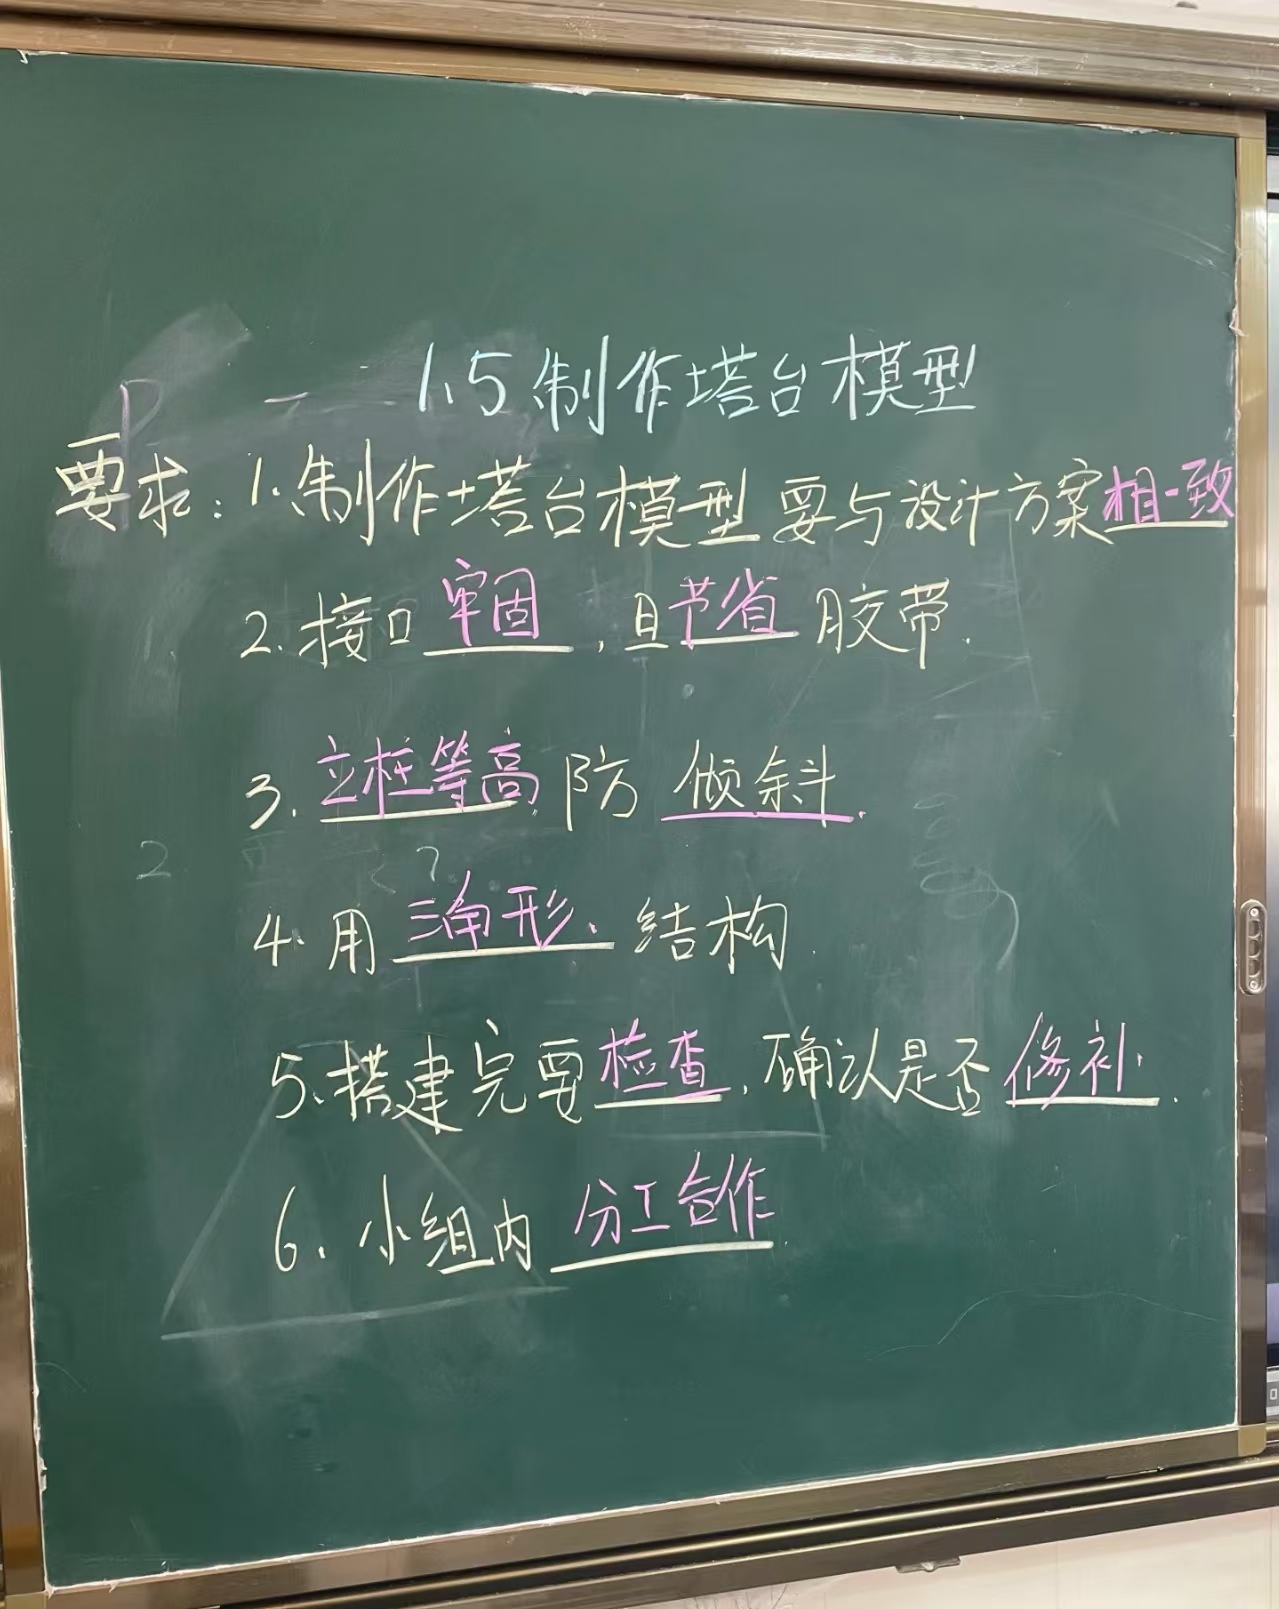 1.5 制作塔台模型
要求：1.制作塔台模型要与设计方案相一致
2.接口牢固，且节省胶带.
3.立柱等高,防倾斜.
4.用三角形.结构.
5.搭建完要检查,确认是否修补.
6.小组内分工合作.